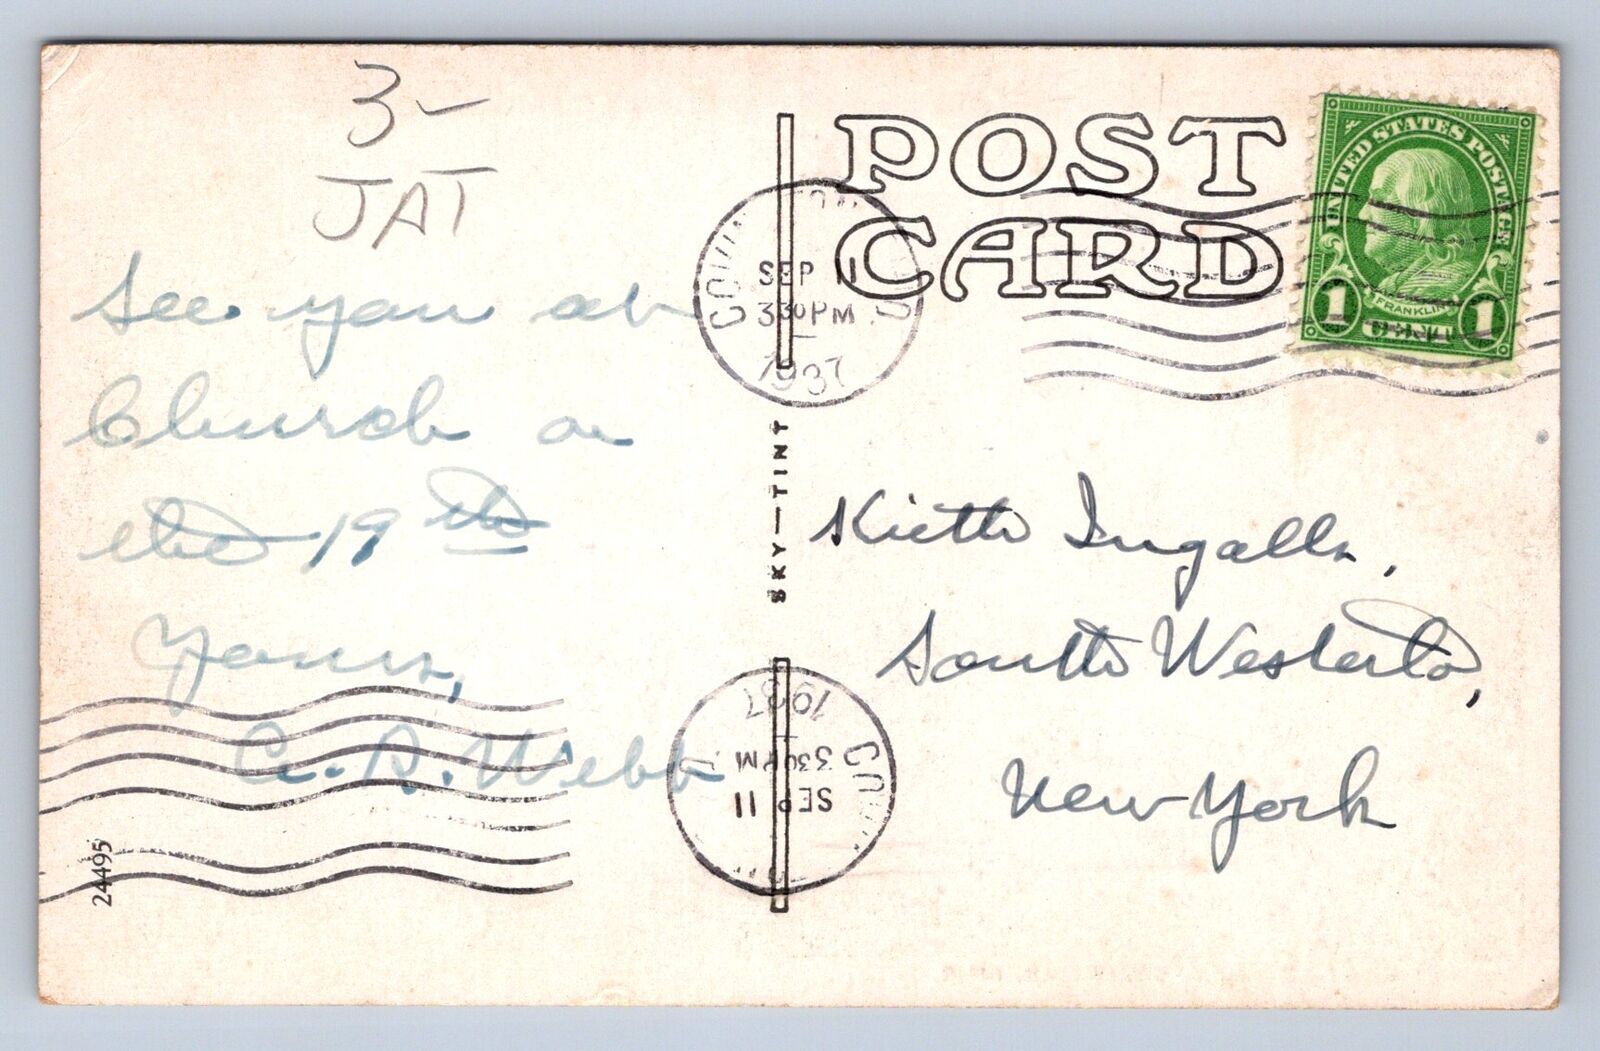 3-
JAT
POST
CARD
UNITED STATES POSTAGE
FRANKLIN
1 CENT 1
SEP 11
330 PM
1937
See you at
Church on
the 19th
Yours,
A. Webb
SKY-TINT
Kieth Ingalls,
South Westerlo,
New York
1937
330 PM
SEP 11
24495